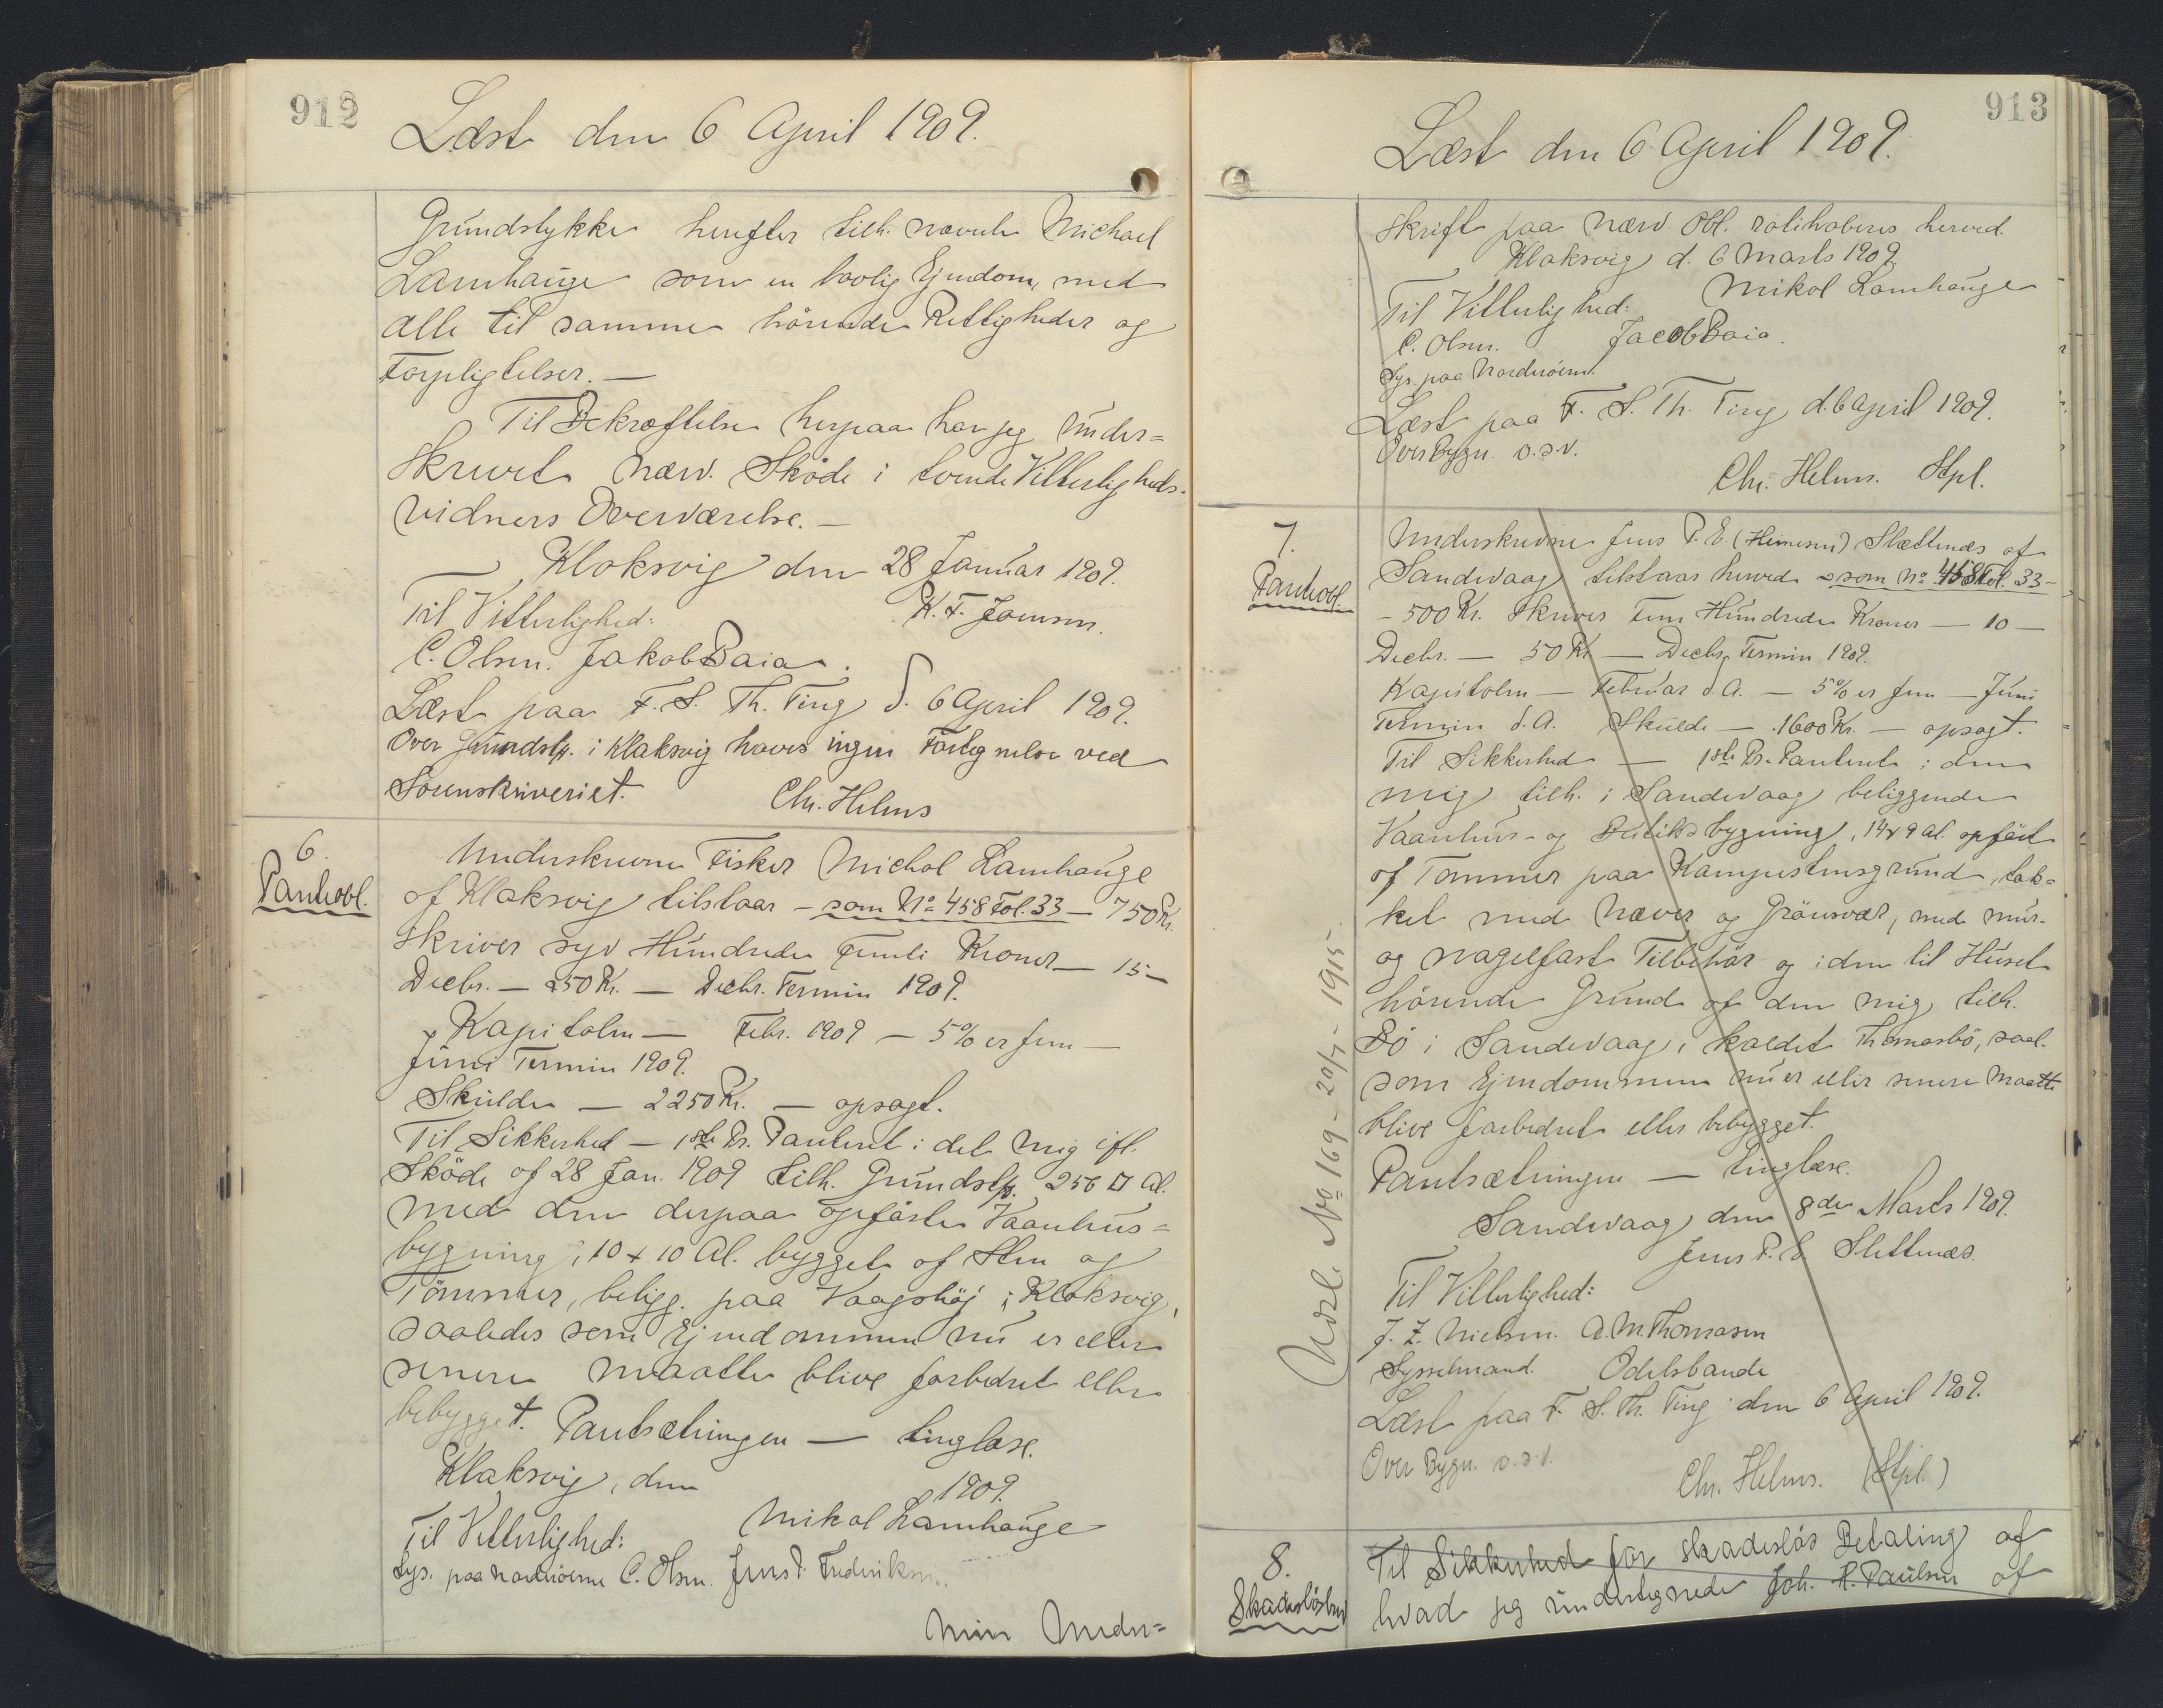 912
Læst den 6 April 1909.
Grundstykke herefter tilh. nævnte Michael
Lamhauge som en lovlig Ejendom, med
alle til samme hörende Rettigheder og
Forpligtelser. —
Til Bekræftelse herpaa har jeg under=
skrevet nærv. Sköde i tvende Vitterligheds-
vidners Overværelse. —
Klaksvig den 28 Januar 1909.
Til Vitterlighed: K. F. Joensen.
C. Olsen. Jakob Baia.
Læst paa F. S. Th. Ting d. 6 April 1909.
Over Grundstk. i Klaksvig haves ingen Fortegnelse ved
Sorenskriveriet. Chr. Helms
6.
Pantobl.
Underskrevne Fisker Michal Lamhauge
af Klaksvig tilstaar – som No 458 Fol. 33 – 750 Kr.
skriver syv Hundrede Femti Kroner — 15 —
Decbr. — 250 Kr. — Decbr. Termin 1909.
Kapitalen — Febr. 1909 — 5% er fem —
Juni Termin 1909.
Skulde — 2250 Kr. — opsagt.
Til Sikkerhed — 1ste Pr. Panteret i det mig ifl.
Sköde af 28 Jan. 1909 tilh. Grundstk. 256 □ Al.
med den derpaa opförte Vaanhus=
bygning, 10 x 10 Al. bygget af Sten og
Tömmer, beligg. paa Vaagshöj i Klaksvig,
saaledes som Ejendommen nu er eller
senere maatte blive forbedret eller
bebygget. Pantsætningen — tinglæse.
Klaksvig, den 1909.
Mikal Lamhauge
Til Vitterlighed:
Sys. paa Norderöerne C. Olsen. Jens P. Frederiksen.
Min Under=
913
Læst den 6 April 1909.
skrift paa nærv. Obl. ratihaberes herved.
Klaksvig d. 6 Marts 1909.
Mikal Lamhauge
Til Vitterlighed:
C. Olsen. Jacob Baia.
Sys. paa Norderöerne.
Læst paa F. S. Th. Ting d. 6 April 1909.
Over Bygn. o.s.v.
Chr. Helms. Stpl.
7.
Pantobl.
Underskrevne Jens P. E (Heinesen) Slættenæs af
Sandevaag tilstaar herved – som No 458 Fol. 33 –
– 500 Kr. skriver Fem Hundrede Kroner — 10 —
Decbr. — 50 Kr — Decbr. Termin 1909.
Kapitalen — Februar d. A. — 5% er fem — Juni
Termin d. A. Skulde — 1600 Kr. — opsagt.
Til Sikkerhed — 1ste Pr. Panteret i den
mig tilh. i Sandevaag beliggende
Vaanhus- og Butiksbygning, 14 x 9 Al. opfört
af Tömmer paa Kampestensgrund, tæk=
ket med Næver og Grönsvær, med mur-
og nagelfast Tilbehör og i den til Huset
hörende Grund af den mig tilh.
Bö i Sandevaag, kaldet Thomasbö, saal.
som Ejendommen nu er eller senere maatte
blive forbedret eller bebygget.
Pantsætningen — tinglæse.
Sandevaag den 8de Marts 1909.
Jens P. E Slettenæs.
Til Vitterlighed:
J. Z. Nielsen. A. M. Thomasen
Sysselmand. Odelsbonde
Læst paa F. S. Th. Ting den 6 April 1909.
Over Bygn. o.s.v.
Chr. Helms. (Stpl.)
Udsl. No 169 – 20/7 – 1915.
8.
Skadeslösbrev
Til Sikkerhed for skadeslös Betaling af
hvad jeg undertegnede Joh. H. Paulsen af